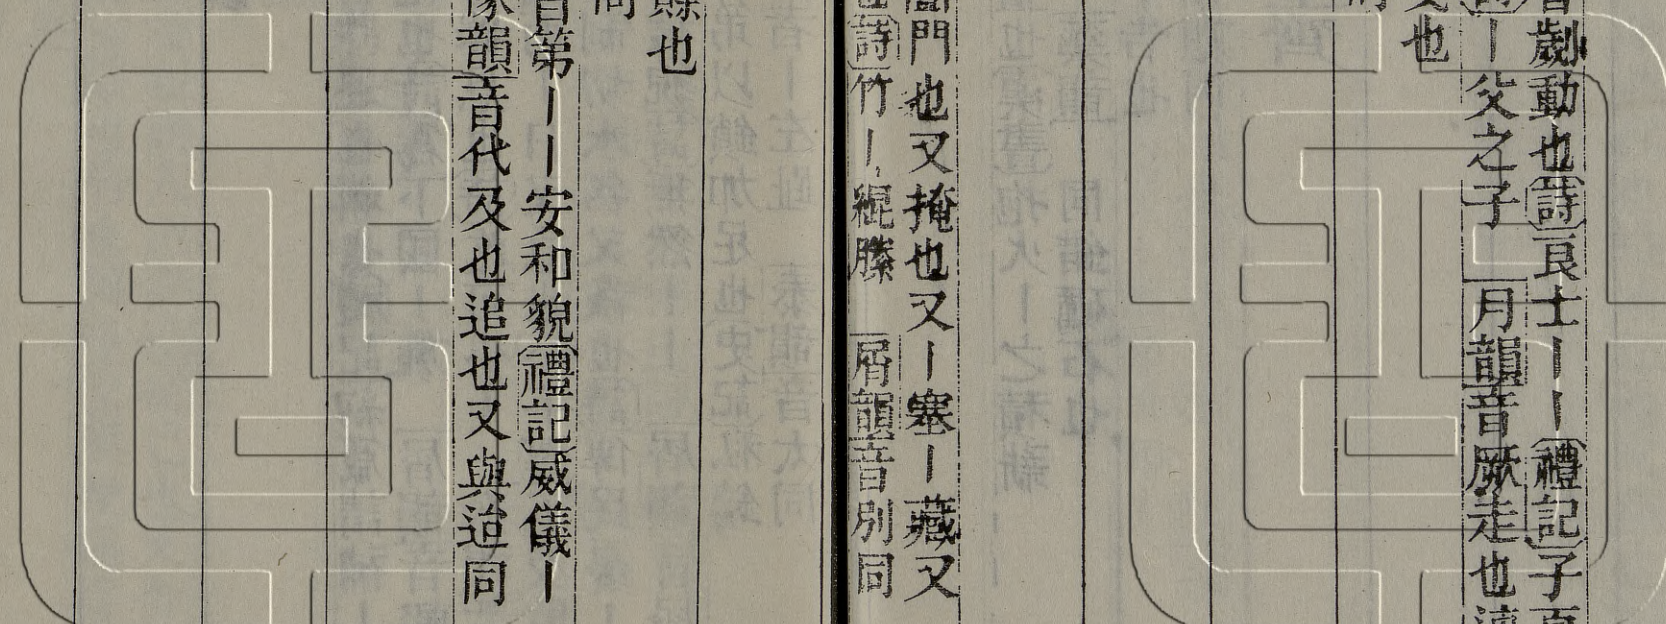 劌動也詩良士丨丨禮記子
丨父之子月韻音厥走也
也
門也又掩也又丨塞丨藏又
詩竹丨緄縢屑韻音別同
也
第丨丨安和貌禮記威儀丨
韻音代及也追也又與迨同